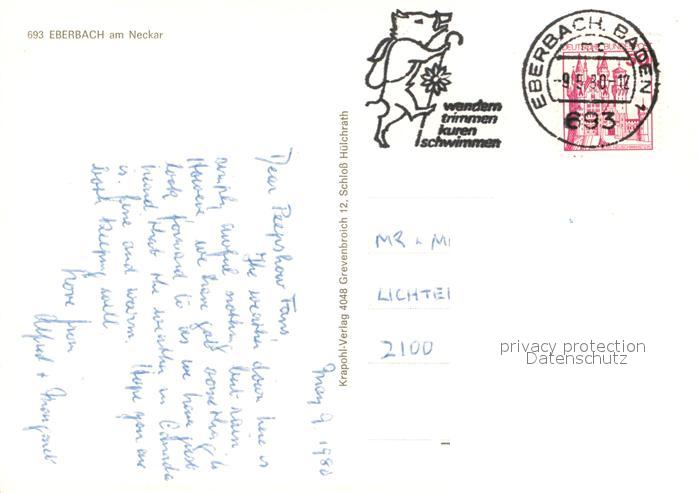 693 EBERBACH am Neckar
wandern
trimmen
kuren
schwimmen
EBERBACH, BADEN
-9.5.80-12
693
DEUTSCHE BUNDESPOST
Krapohl-Verlag 4048 Grevenbroich 12, Schloß Hülchrath
May 9. 1980
Dear Peepshow Fans!
The weather down here is
simply awful nothing but rain
However we have got something to
look forward to as we have just
heard that the weather in Canada
is fine and warm. Hope you are
both keeping well
Love from
Alfred + Margaret
MR + M
LICHTE
2100
privacy protection
Datenschutz